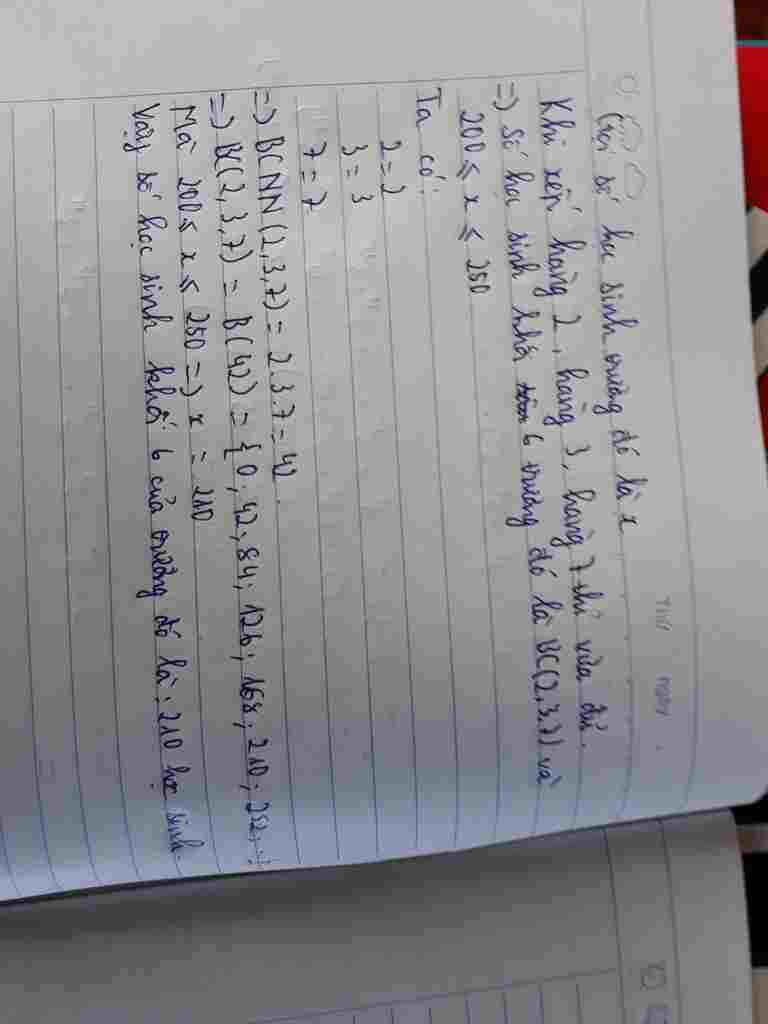 Thứ ngày
Gọi số học sinh trường đó là x
Khi xếp hàng 2, hàng 3, hàng 7 thì vừa đủ.
=) Số học sinh khối 6 trường đó là BC(2,3,7) và
200 ≤ x ≤ 250
Ta có:
2 = 2
3 = 3
7 = 7
=) BCNN (2,3,7) = 2.3.7 = 42.
=) BC(2,3,7) = B(42) = {0; 42; 84; 126; 168; 210; 252;...}
Mà 200 ≤ x ≤ 250 =) x = 210
Vậy số học sinh khối 6 của trường đó là: 210 học sinh.